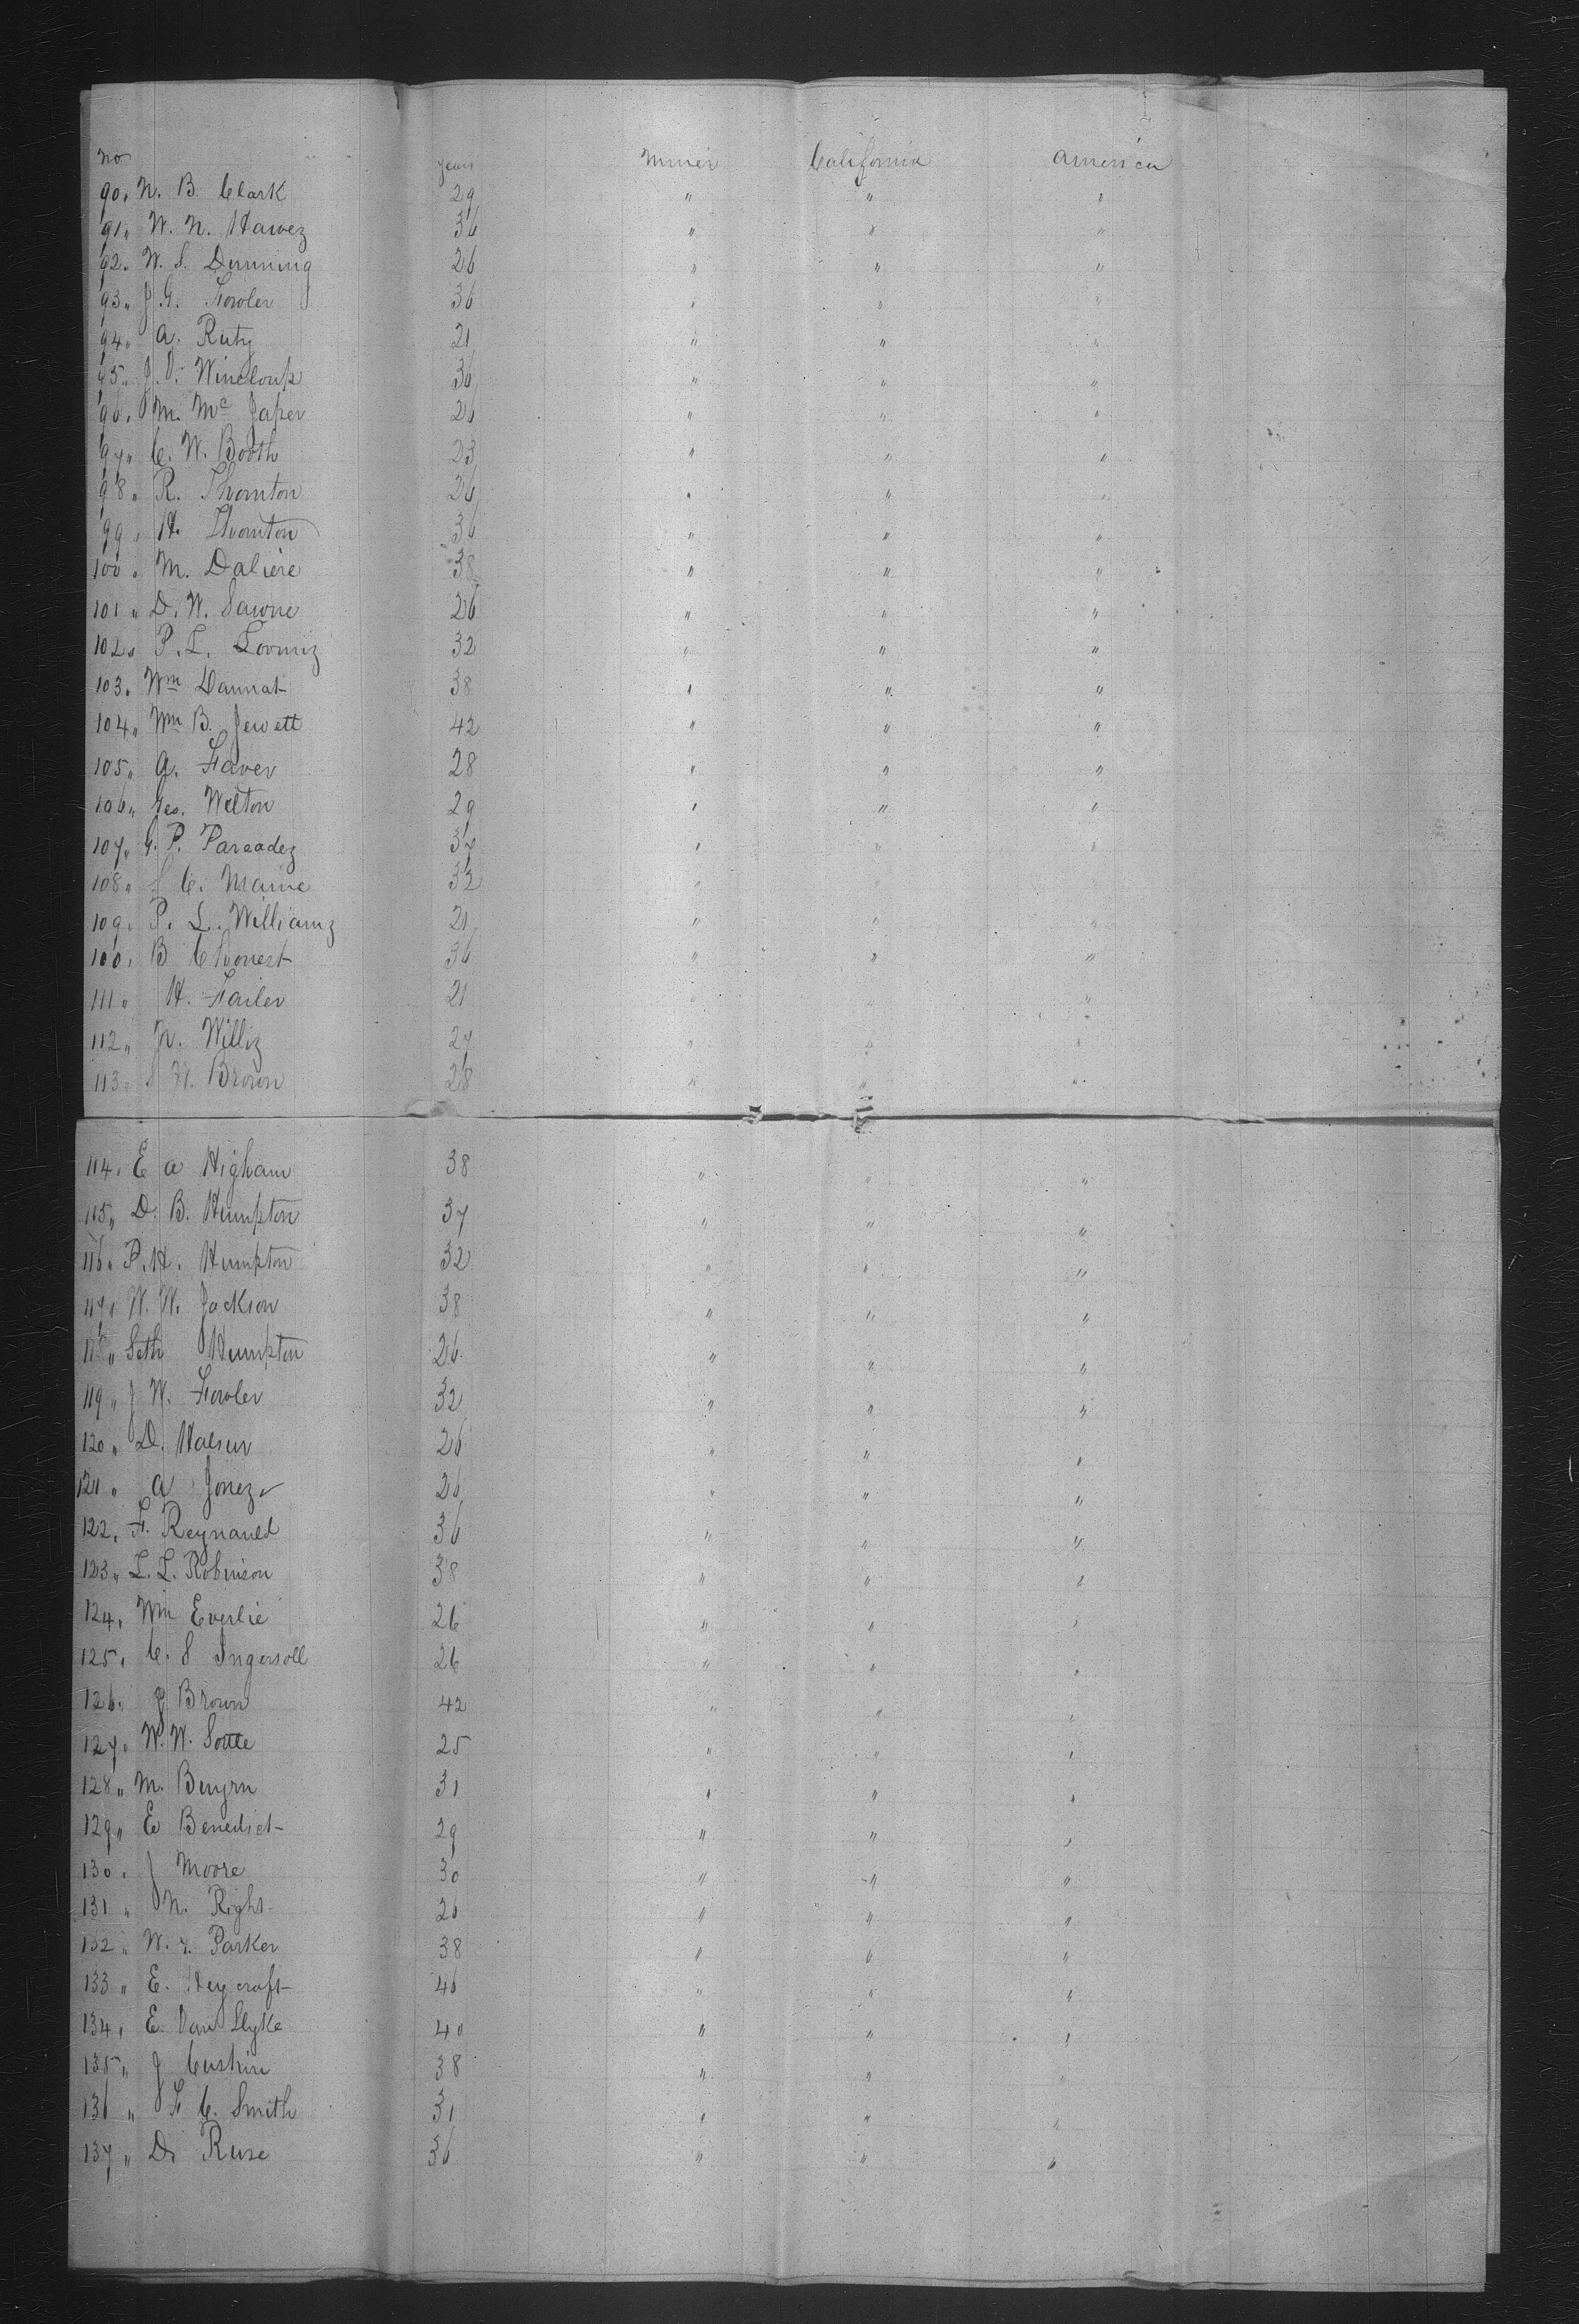 no years Miner California America
90 " N. B. Clark 29 " " "
91 " W. N. Hawez 36 " " "
92 " W. S. Dunning 26 " " "
93 " J. G. Fowler 36 " " "
94 " A. Ruty 21 " " "
95 " J. V. Wineloup 36 " " "
96 " M. Mc Japer 26 " " "
97 " C. W. Booth 23 " " "
98 " R. Thornton 26 " " "
99 " H. Thornton 36 " " "
100 " M. Daliere 38 " " "
101 " D. W. Sawne 26 " " "
102 " P. L. Loomiz 32 " " "
103 " Wm Dannat 38 " " "
104 " Wm B. Jewett 42 " " "
105 " G. Faver 28 " " "
106 " Geo. Welton 29 " " "
107 " G. P. Pareadez 37 " " "
108 " S C. Maine 32 " " "
109 " P. L. Williamz 21 " " "
100 " B Chonest 36 " " "
111 " H. Failer 21 " " "
112 " N. Williz 27 " " "
113 " S W. Brown 28 " " "
114 " E a Higham 38 " " "
115 " D. B. Humpton 37 " " "
116 " P. H. Humpton 32 " " "
117 " W. W. Jackson 38 " " "
118 " Seth Humpton 26 " " "
119 " J W. Fowler 32 " " "
120 " D. Halsur 26 " " "
121 " a Jonez 26 " " "
122 " F. Reynaued 36 " " "
123 " L. L. Robinson 38 " " "
124 " Wm Everlie 26 " " "
125 " C. S Ingersoll 26 " " "
126 " J Brown 42 " " "
127 " W. W. Sottle 25 " " "
128 " M. Buyrn 31 " " "
129 " E Benedict 29 " " "
130 " J Moore 30 " " "
131 " N. Right 26 " " "
132 " W. Parker 38 " " "
133 " E. Heycraft 46 " " "
134 " E. Van Slyke 40 " " "
135 " J Cushin 38 " " "
136 " F C. Smith 31 " " "
137 " D. Ruse 36 " " "